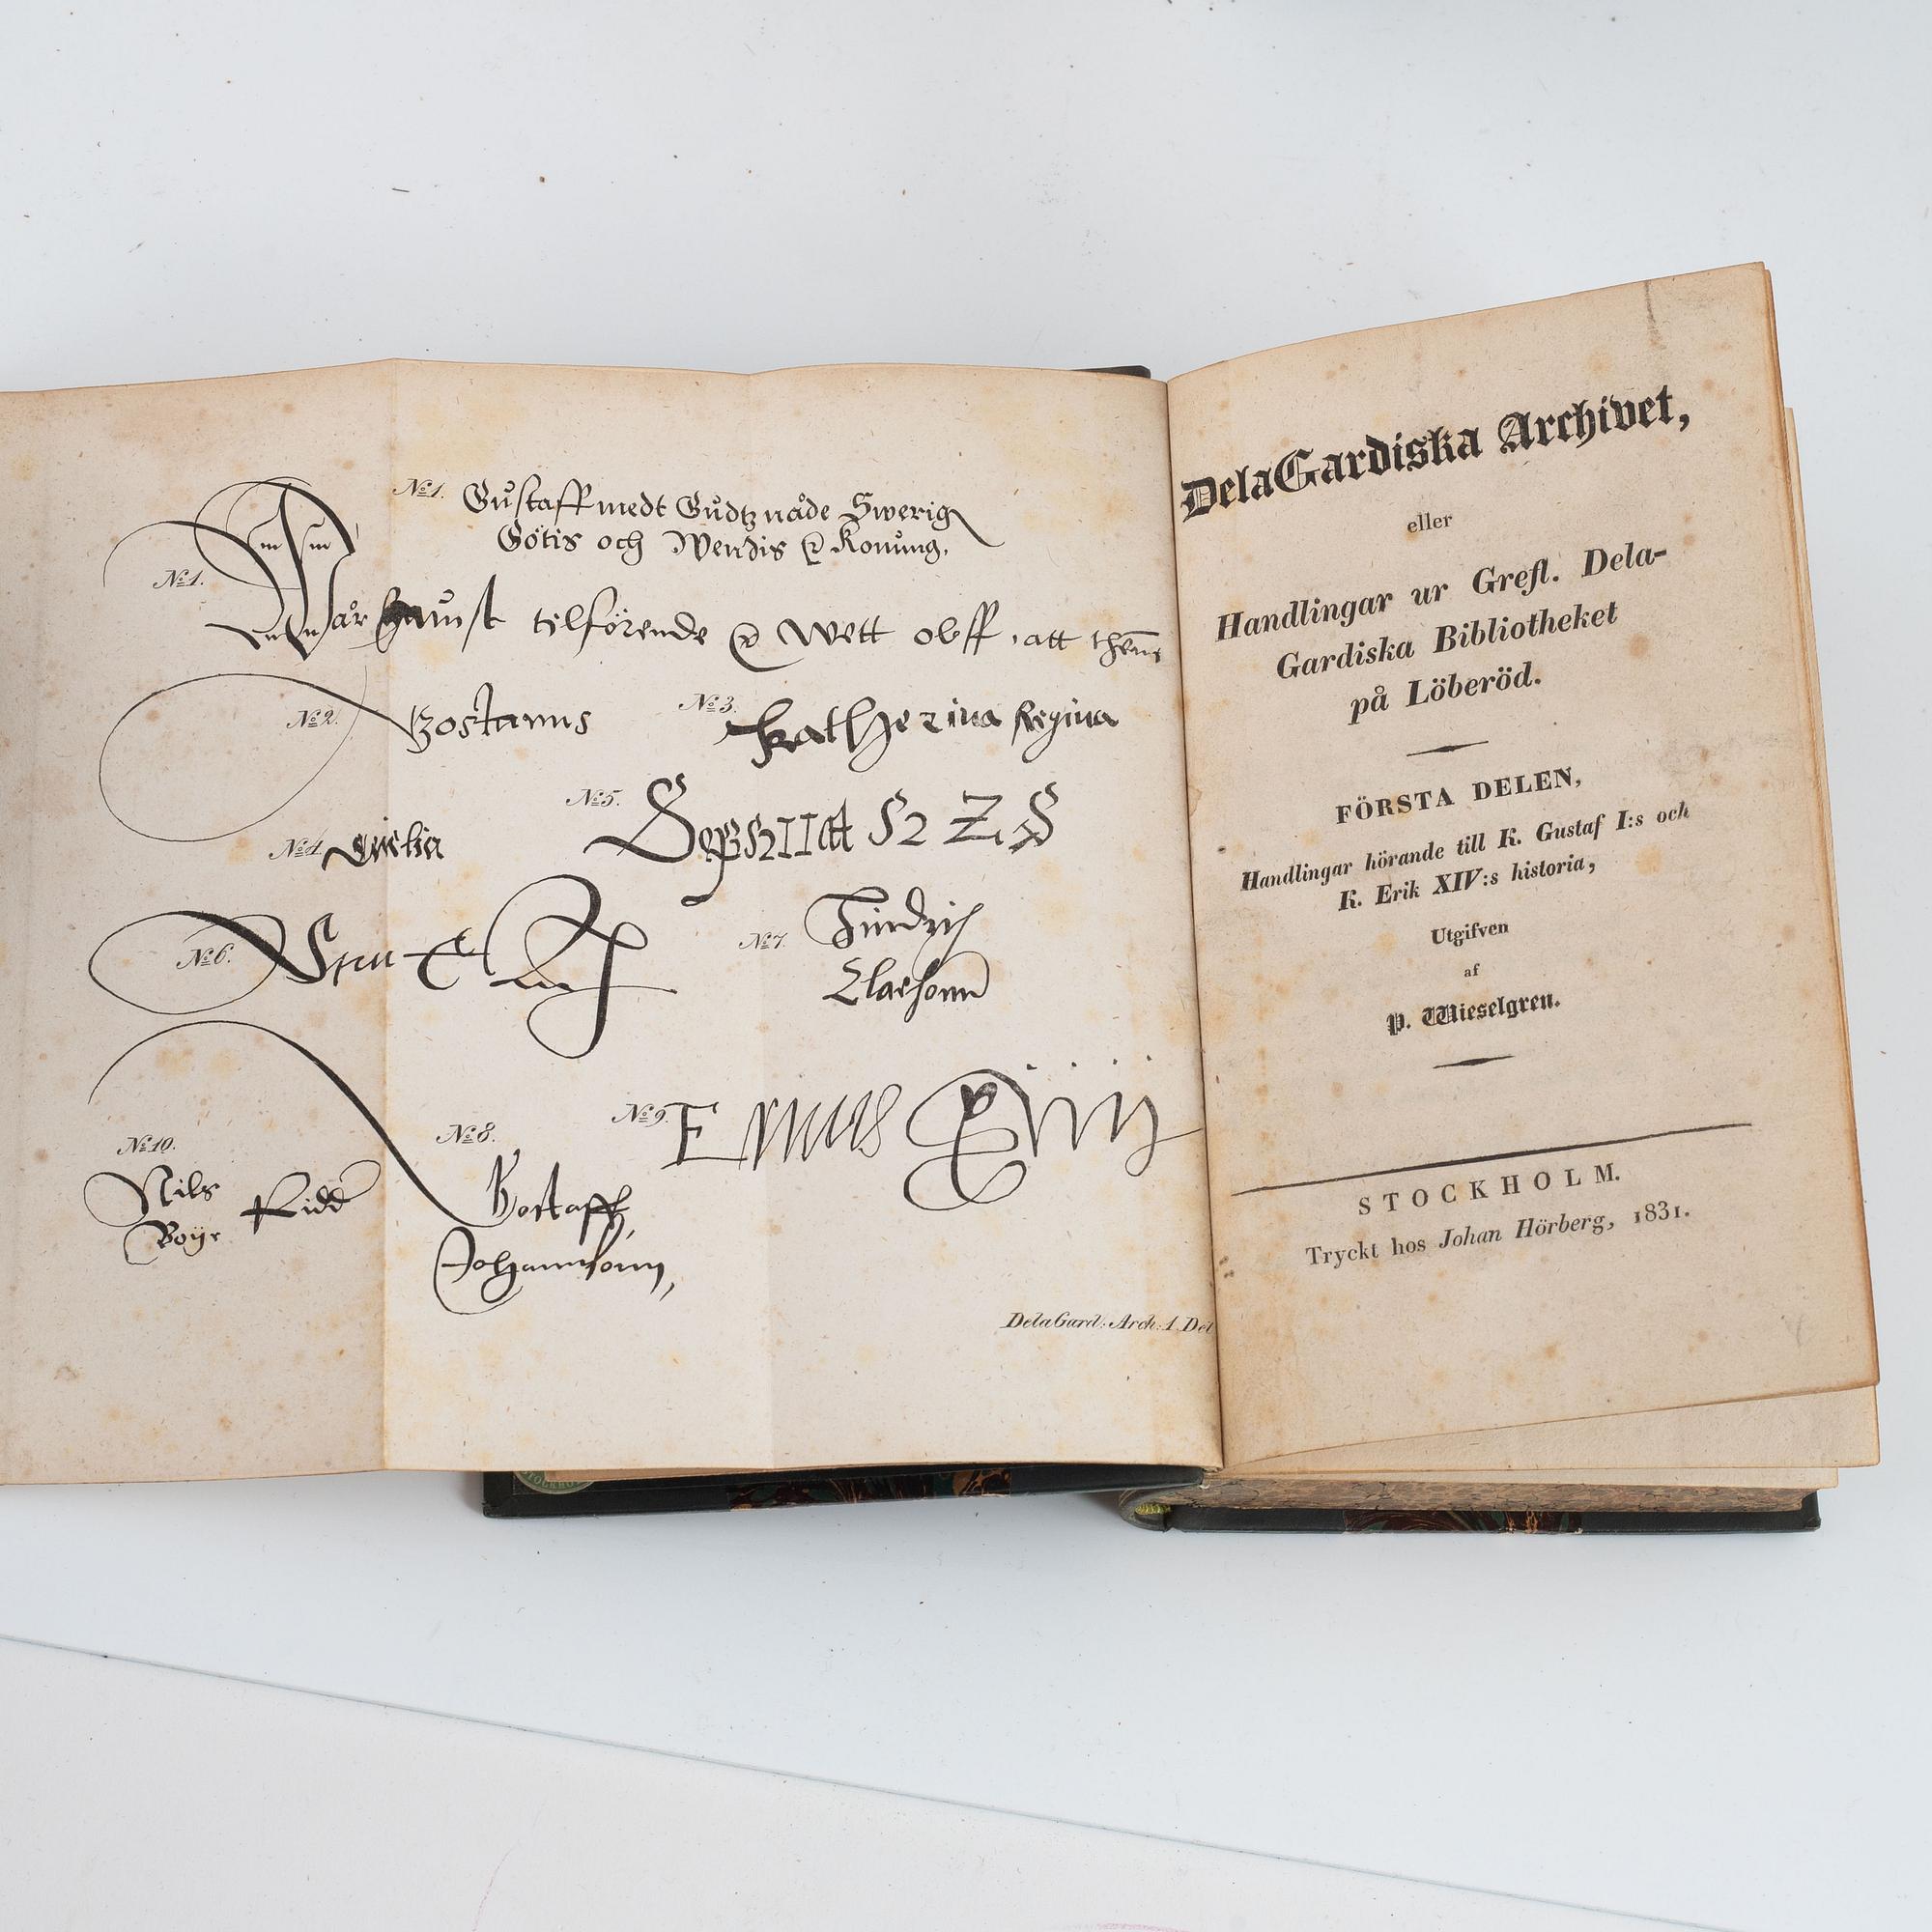 No 1. Gustaff medt Gudtz nåde Swerig
Götis och Wendis Konung.
No 1.
Wår gunst tilförende Wett obff, att
No 2. Gostauus
No 3. Katherina Regina
No 4.
No 5.
No 6.
No 7.
Claesonn
No 8. Gostaff
Johannsonn,
No 9. Ericus
No 10.
Nils
Boije Ridd
DelaGard. Arch. 1. Del
DelaGardiska Archivet,
eller
Handlingar ur Grefl. Dela-
Gardiska Bibliotheket
på Löberöd.
FÖRSTA DELEN,
Handlingar hörande till K. Gustaf I:s och
K. Erik XIV:s historia,
Utgifven
af
P. Wieselgren.
STOCKHOLM.
Tryckt hos Johan Hörberg, 1831.